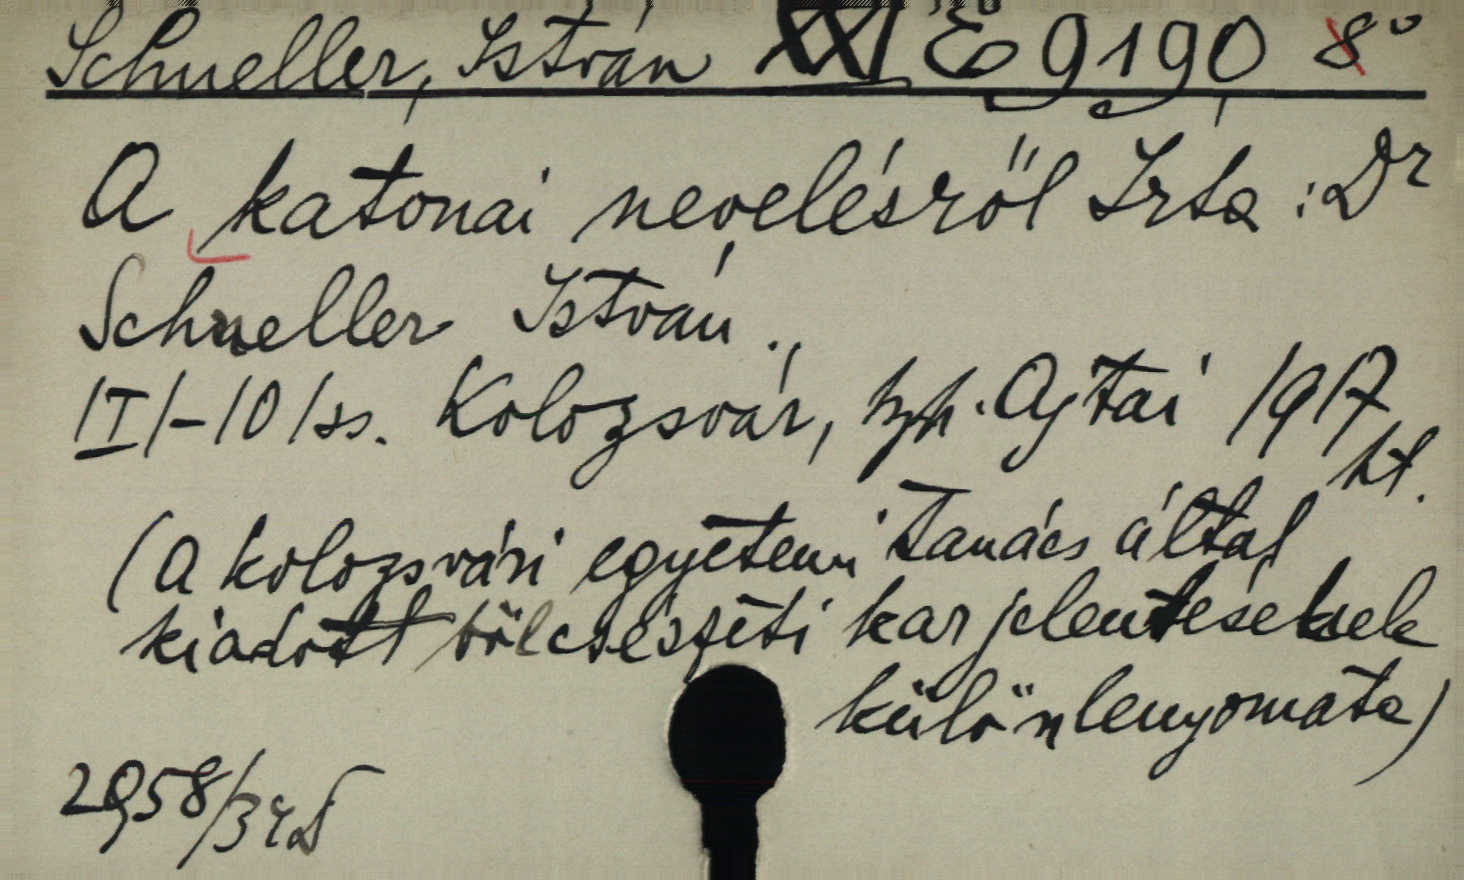 Schneller, István XXI E 9190 8°
A katonai nevelésről Irta: Dr
Schneller István.
1T1-101ss. Kolozsvár, Ajtai 1917
(A kolozsvári egyetemi Tanács által
kiadott bölcsészeti kar jelentésének
különlenyomata)
2958/34